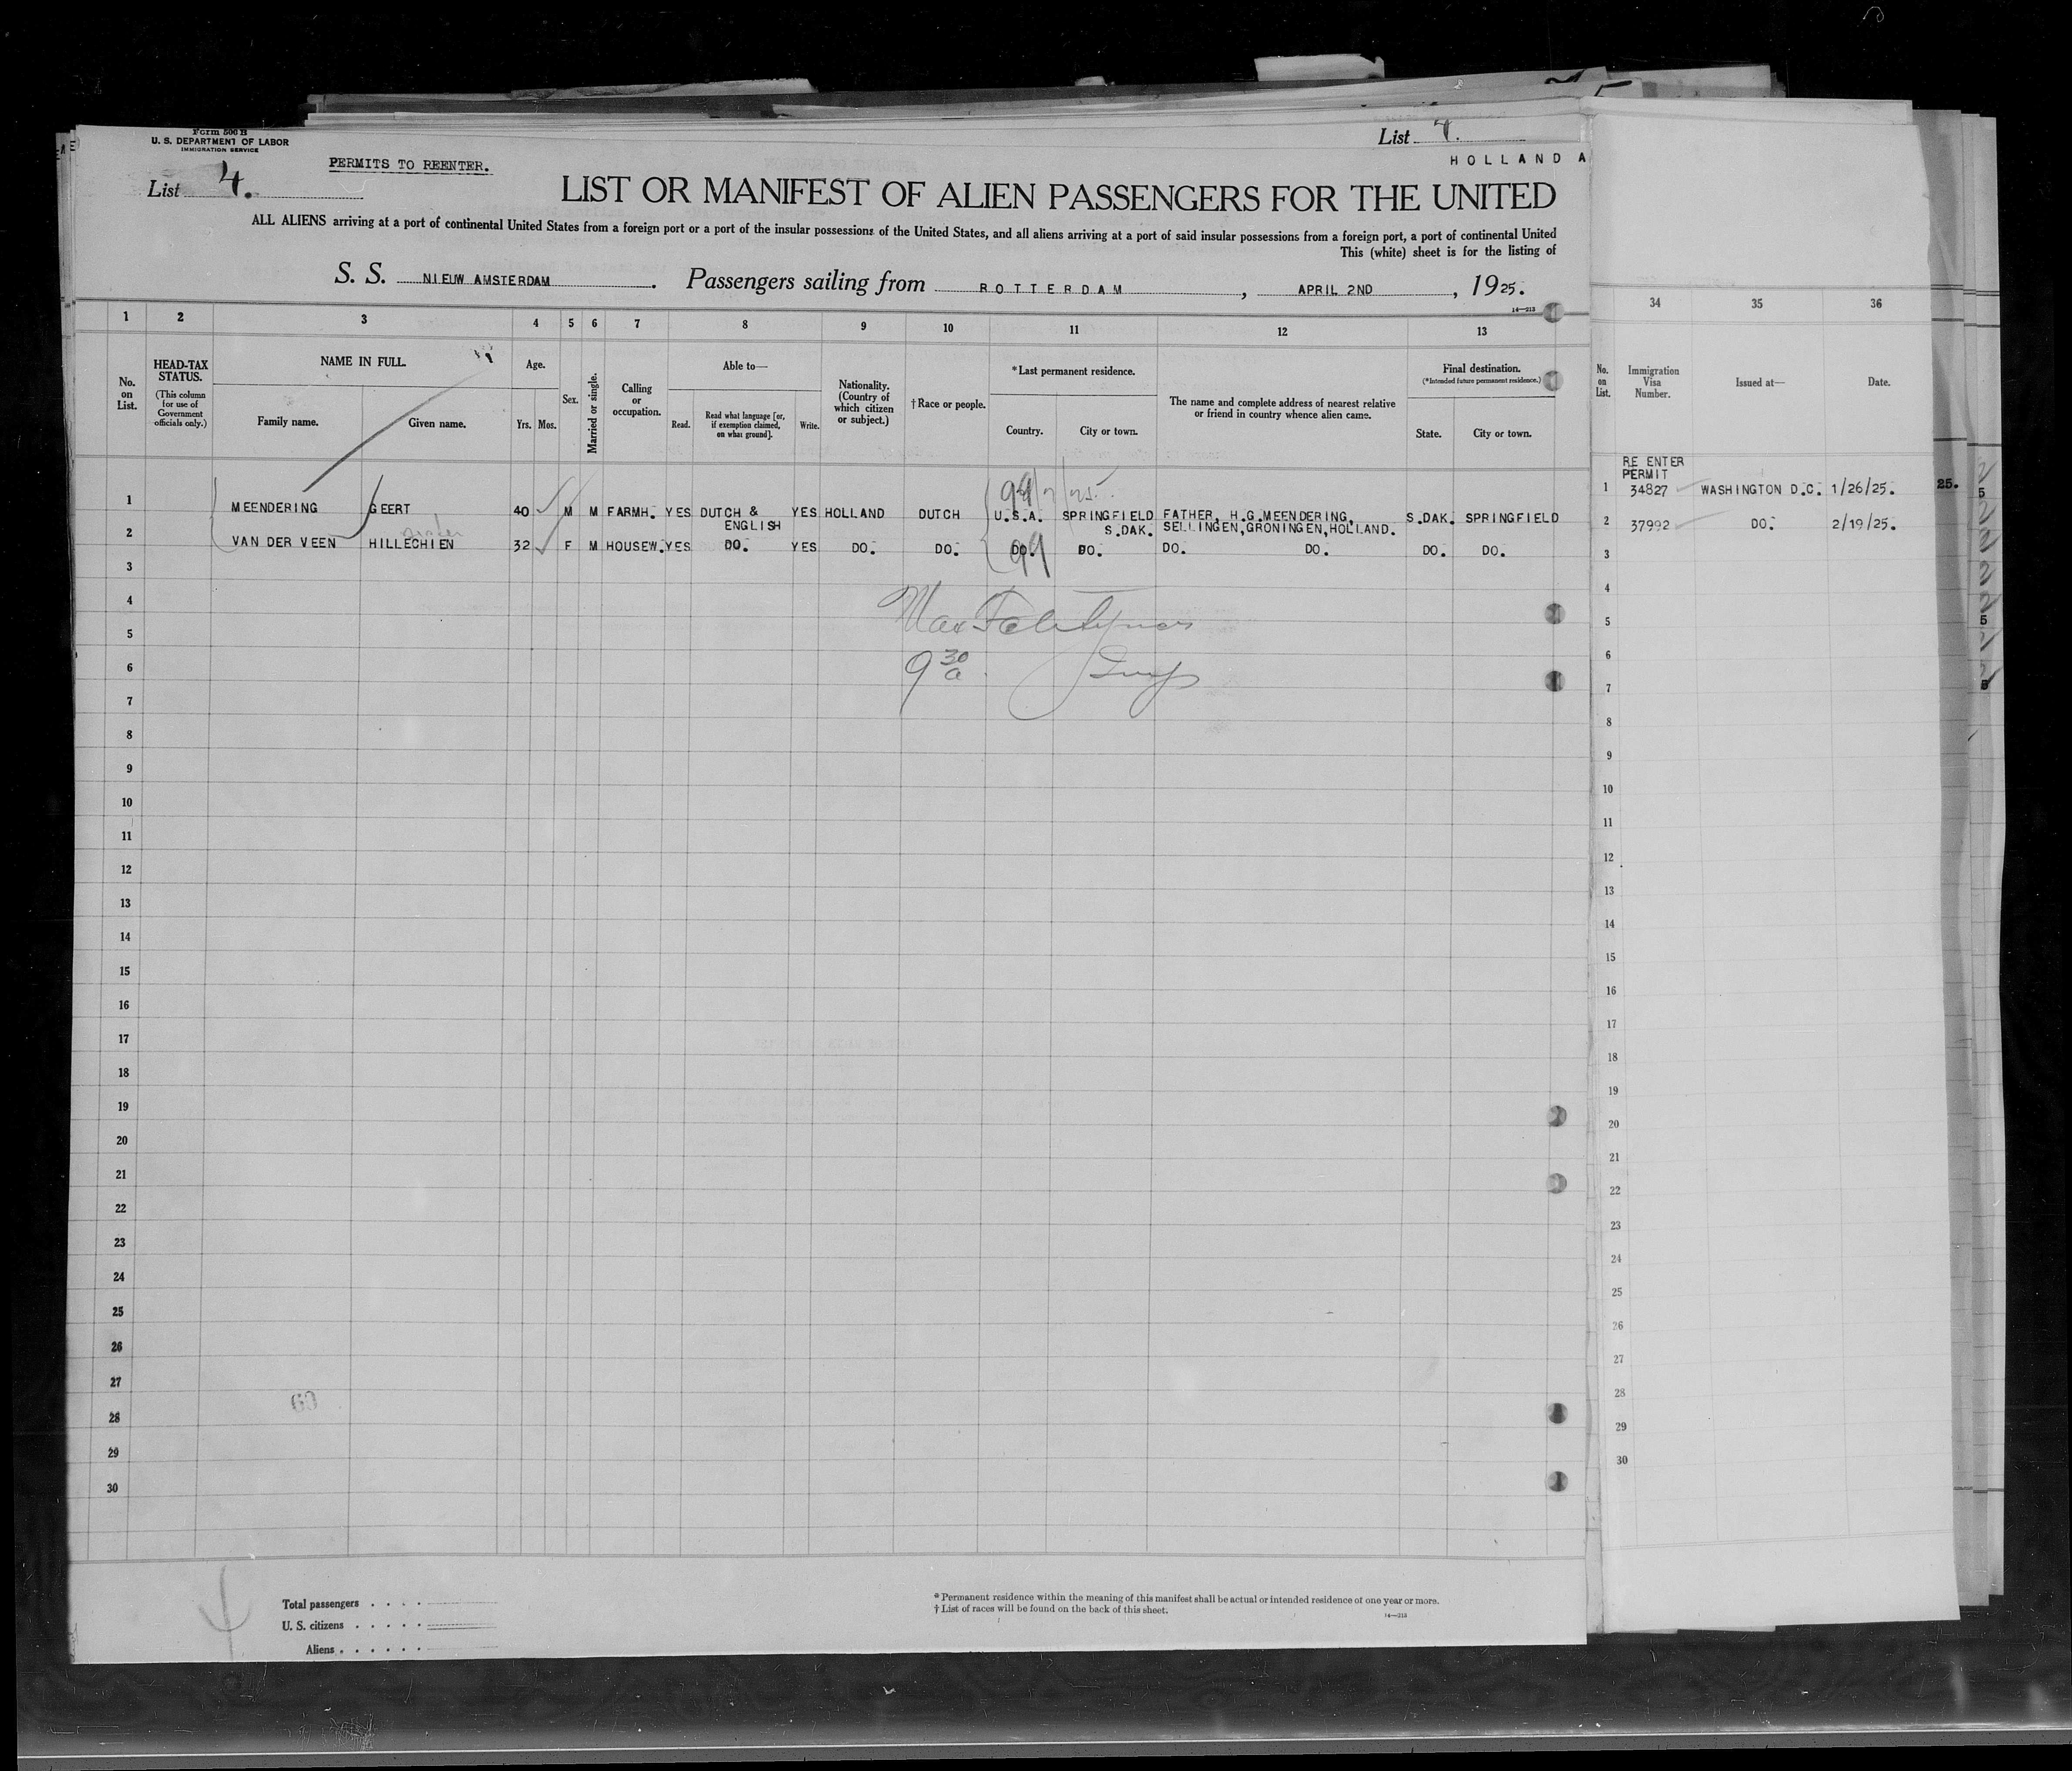 Form 500 B
U. S. DEPARTMENT OF LABOR
IMMIGRATION SERVICE
List 4.
PERMITS TO REENTER.
List 4.
HOLLAND A
LIST OR MANIFEST OF ALIEN PASSENGERS FOR THE UNITED
ALL ALIENS arriving at a port of continental United States from a foreign port or a port of the insular possessions of the United States, and all aliens arriving at a port of said insular possessions from a foreign port, a port of continental United
This (white) sheet is for the listing of
S. S. NIEUW AMSTERDAM. Passengers sailing from ROTTERDAM, APRIL 2ND, 1925.
14—213
1 2 3 4 5 6 7 8 9 10 11 12 13 34 35 36
No. on List.
HEAD-TAX STATUS.
(This column for use of Government officials only.)
NAME IN FULL.
Family name. Given name.
Age.
Yrs. Mos.
Sex.
Married or single.
Calling or occupation.
Able to—
Read. Read what language [or, if exemption claimed, on what ground]. Write.
Nationality. (Country of which citizen or subject.)
†Race or people.
*Last permanent residence.
Country. City or town.
The name and complete address of nearest relative or friend in country whence alien came.
Final destination.
(*Intended future permanent residence.)
State. City or town.
No. on List.
Immigration Visa Number.
Issued at—
Date.
RE ENTER
PERMIT
1 MEENDERING GEERT 40 M M FARMH. YES DUTCH & ENGLISH YES HOLLAND DUTCH U.S.A. SPRINGFIELD S.DAK. FATHER, H.G.MEENDERING, SELLINGEN,GRONINGEN,HOLLAND. S.DAK. SPRINGFIELD
1 34827 WASHINGTON D.C. 1/26/25.
25.
99
2 VAN DER VEEN HILLECHIEN 32 F M HOUSEW. YES DO. YES DO. DO. DO. DO. DO. DO. DO. DO.
2 37992 DO. 2/19/25.
99
3 3
4 4
5 5
9 30 a
6 6
7 7
8 8
9 9
10 10
11 11
12 12
13 13
14 14
15 15
16 16
17 17
18 18
19 19
20 20
21 21
22 22
23 23
24 24
25 25
26 26
27 27
28 28
29 29
30 30
Total passengers
U. S. citizens
Aliens
*Permanent residence within the meaning of this manifest shall be actual or intended residence of one year or more.
†List of races will be found on the back of this sheet.
14—213